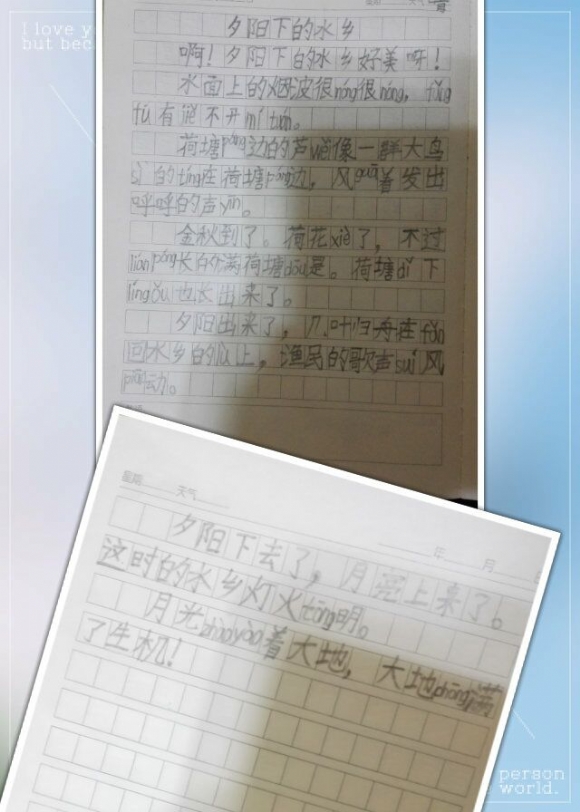 I love y
but bec
星期 天气
夕阳下的水乡
啊!夕阳下的水乡好美呀!
水面上的烟波很nóng很nóng,fǎng
fú有 不开mí tuán。
荷塘páng边的芦wěi像一群大鸟
sì的tíng在荷塘páng边,风guā着发出
呼呼的声yīn。
金秋到了。荷花xiè了,不过
lián péng长的满荷塘dōu是。荷塘dǐ下
líng ǒu也长出来了。
夕阳出来了,几叶归舟在fǎn
回水乡的 上,渔民的歌声suí风
piāo动。
星期 天气
年 月
夕阳下去了,月亮上来了。
这时的水乡灯火tōng明。
月光zhào yào着大地,大地chōng满
了生机!
person
world.